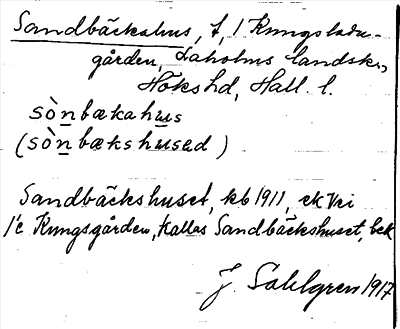 Sandbäckahus, t, 1 Kungsladu-
gården, Laholms landsk.,
Höks hd, Hall. l.
sònbækahus
(sònbækshusad)
Sandbäckshuset, kb 1911, ek Vei
1/2 Kungsgården, kallas Sandbäckshuset, bek
J. Sahlgren 1917